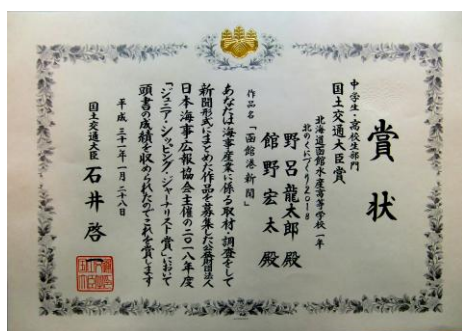 賞状
中学生・高校生部門
国土交通大臣賞
北海道函館水産高等学校一年
北のくにづくり2018
野呂龍太郎殿
館野宏太殿
作品名「函館港新聞」
あなたは海事産業に係る取材・調査をして
新聞形式にまとめた作品を募集した公益財団法人
日本海事広報協会主催の二〇一八年度
「ジュニア・シッピング・ジャーナリスト賞」において
頭書の成績を収められたのでこれを賞します
平成三十一年一月二十八日
国土交通大臣 石井啓一